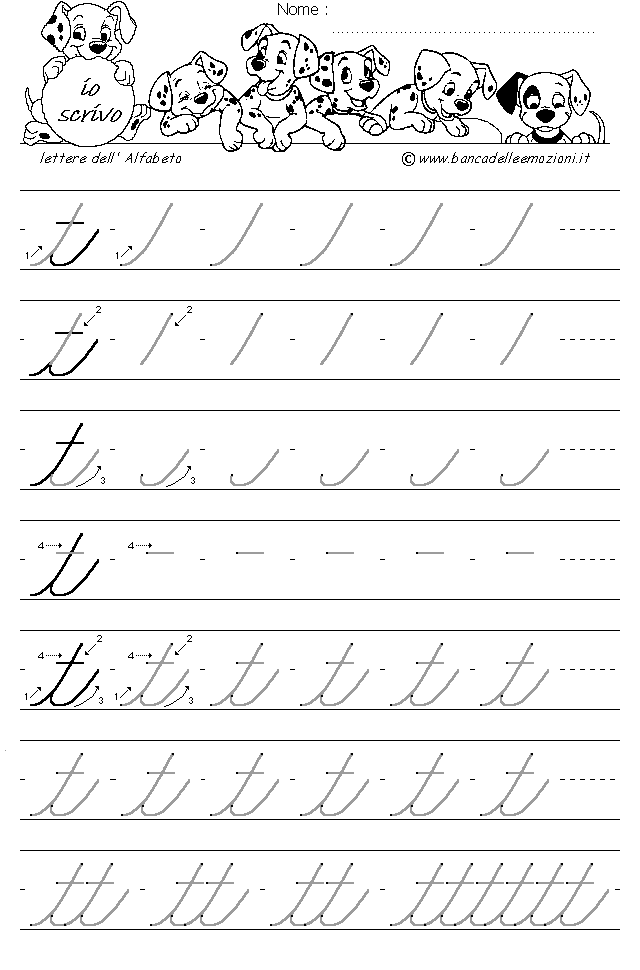 Nome :
io
scrivo
lettere dell' Alfabeto
© www.bancadelleemozioni.it
t
1
1
t
2
2
t
3
3
t
4
4
t t t t t t
4 2 4 2
1 3 1 3
t t t t t t
tt tt tt tttttt